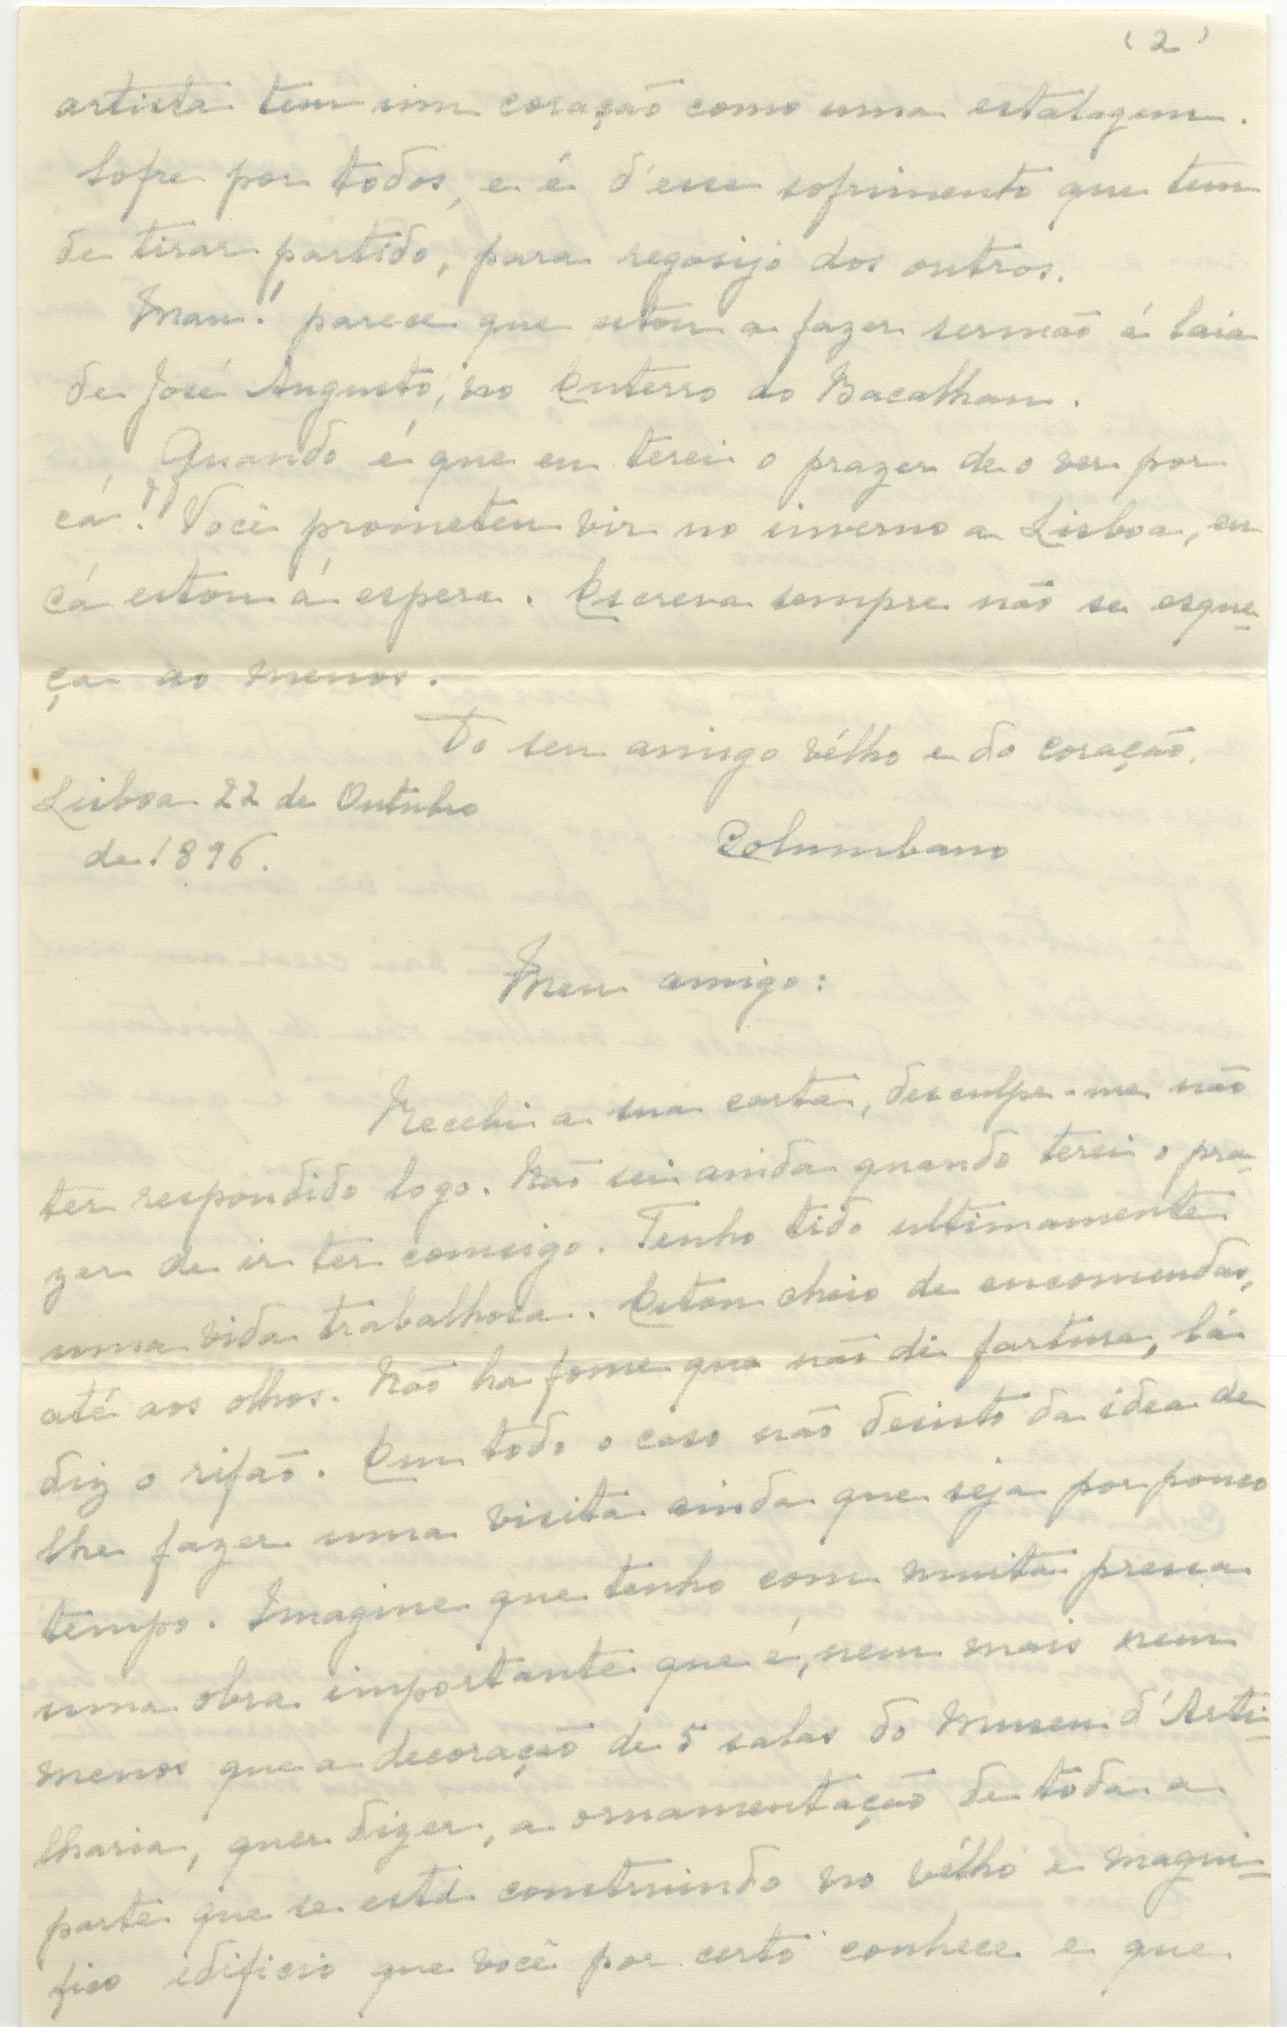 (2)
artista tem um coração como uma estalagem.
Sofre por todos, e é d'esse sofrimento que tem
de tirar partido, para regosijo dos outros.
Mau! parece que estou a fazer sermão á laia
de José Augusto, no Enterro do Bacalhau.
Quando é que eu terei o prazer de o ver por
cá?! Você prometeu vir no inverno a Lisboa, eu
cá estou á espera. Escreva sempre não se esque-
ça ao menos.
Do seu amigo vélho e do coração.
Lisboa 22 de Outubro
de 1896.
Columbano
Meu amigo:
Recebi a sua carta, desculpe-me não
ter respondido logo. Não sei ainda quando terei o pra-
zer de ir ter comsigo. Tenho tido ultimamente
uma vida trabalhosa. Estou cheio de encomendas,
até aos olhos. Não ha fome que não dê fartura, lá
diz o rifão. Em todo o caso não desisto da idea de
lhe fazer uma visita ainda que seja por pouco
tempo. Imagine que tenho com muita pressa
uma obra importante que é, nem mais nem
menos que a decoração de 5 salas do Museu d'Arti-
lharia, quer dizer, a ornamentação de toda a
parte que se está construindo no vélho e magni-
fico idificio que você por certo conhece e que